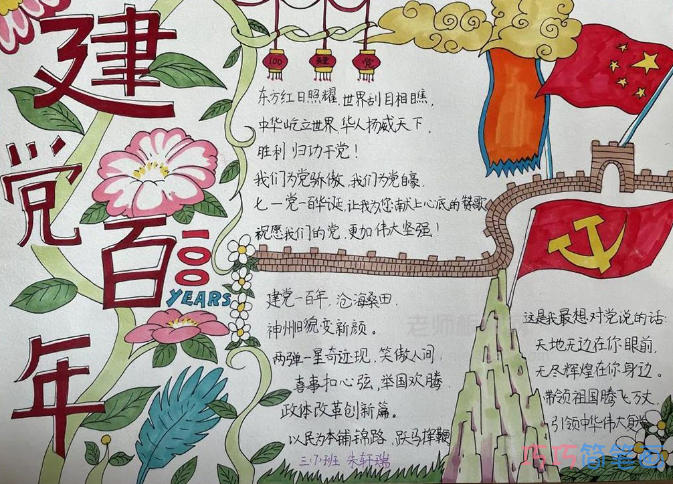 建党百年
100
YEARS
100 建 党
东方红日照耀,世界刮目相瞧,
中华屹立世界,华人扬威天下.
胜利归功于党!
我们为党骄傲,我们为党自豪.
七一党一百华诞,让我为您献上心底的赞歌.
祝愿我们的党,更加伟大坚强!
建党一百年,沧海桑田.
神州旧貌变新颜。
两弹一星奇迹现,笑傲人间,
喜事扣心弦,举国欢腾
政体改革创新篇。
以民为本铺锦路,跃马挥鞭
三(1)班 朱轩瑞
这是我最想对党说的话:
天地无边在你眼前,
无尽辉煌在你身边。
带领祖国腾飞万丈,
引领中华伟大
巧巧简笔画